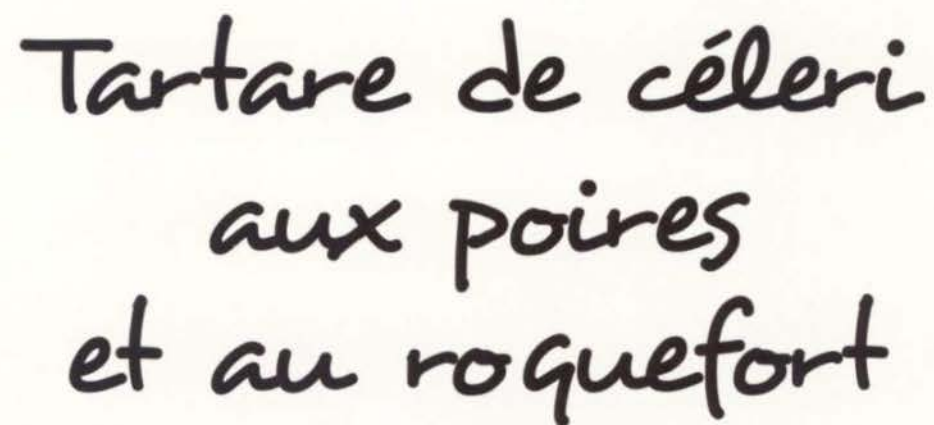 Tartare de céleri
aux poires
et au roquefort